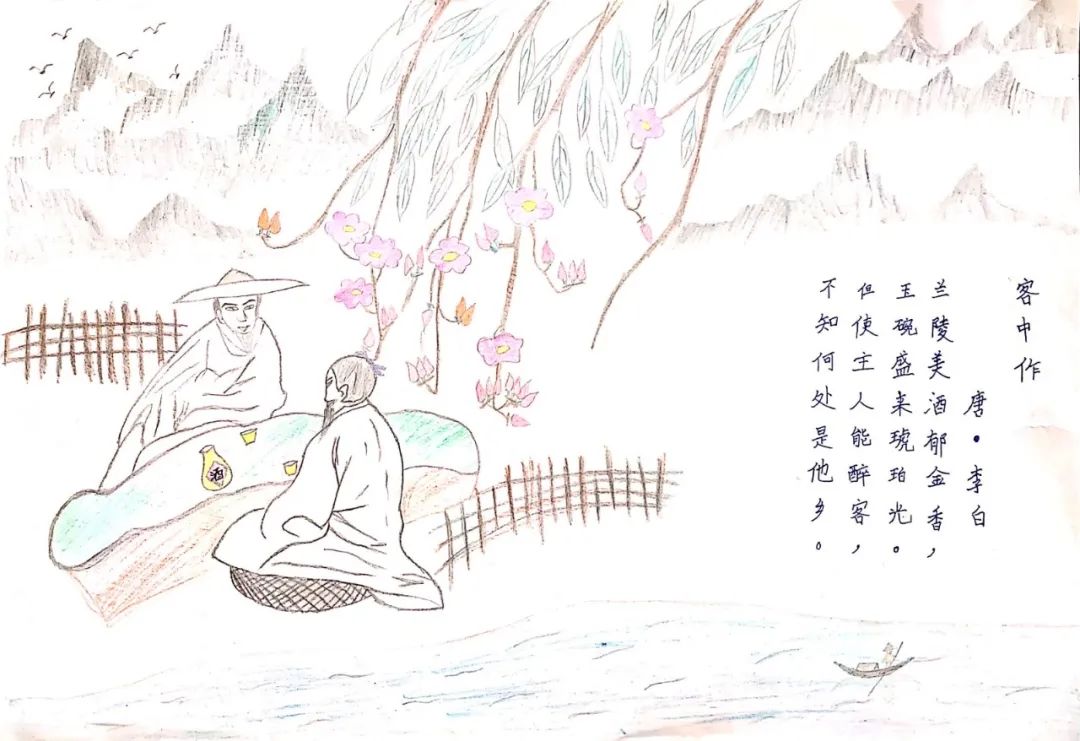 客中作
唐·李白
兰陵美酒郁金香，
玉碗盛来琥珀光。
但使主人能醉客，
不知何处是他乡。
酒